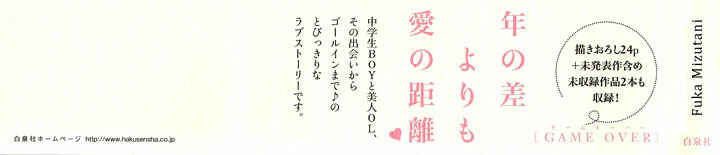 Fuka Mizutani
白泉社
描きおろし24p
+未発表作含め
未収録作品2本も
収録!
ゲームオーバー
[GAME OVER]
年の差
よりも
愛の距離
中学生BOYと美人OL、
その出会いから
ゴールインまで♪の
とびっきりな
ラブストーリーです。
白泉社ホームページ http://www.hakusensha.co.jp